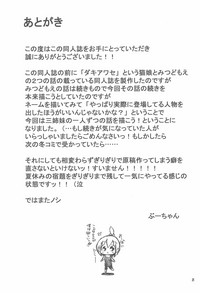 あとがき
この度はこの同人誌をお手にとっていただき
誠にありがとうございました！！
この同人誌の前に「ダキアワセ」という猫娘と
みつどもえの2つの話の載っている同人誌を製作したのですが
みつどもえの話の続きもので今回その話の続きを
本来描こうとしていたので
ネームを描いてみて「やっぱり実際に登場してる人物を
出したほうがいいんじゃないかな？」
ということで三姉妹の一人ずつの話を描こう！ということに
・・・（もし続きが気になっていた人が
いらっしゃいましたらごめんなさいっ！もしかしたら
次の冬コミで出しているかも・・・）
それにしても相変わらずぎりぎりで原稿作ってしまう癖を
直さないといけないっ！すいません！！！！
夏休みの宿題をぎりぎりまで残して一気にやってる感じの
状態ですッ！！（泣
ではまたノシ
ぶーちゃん